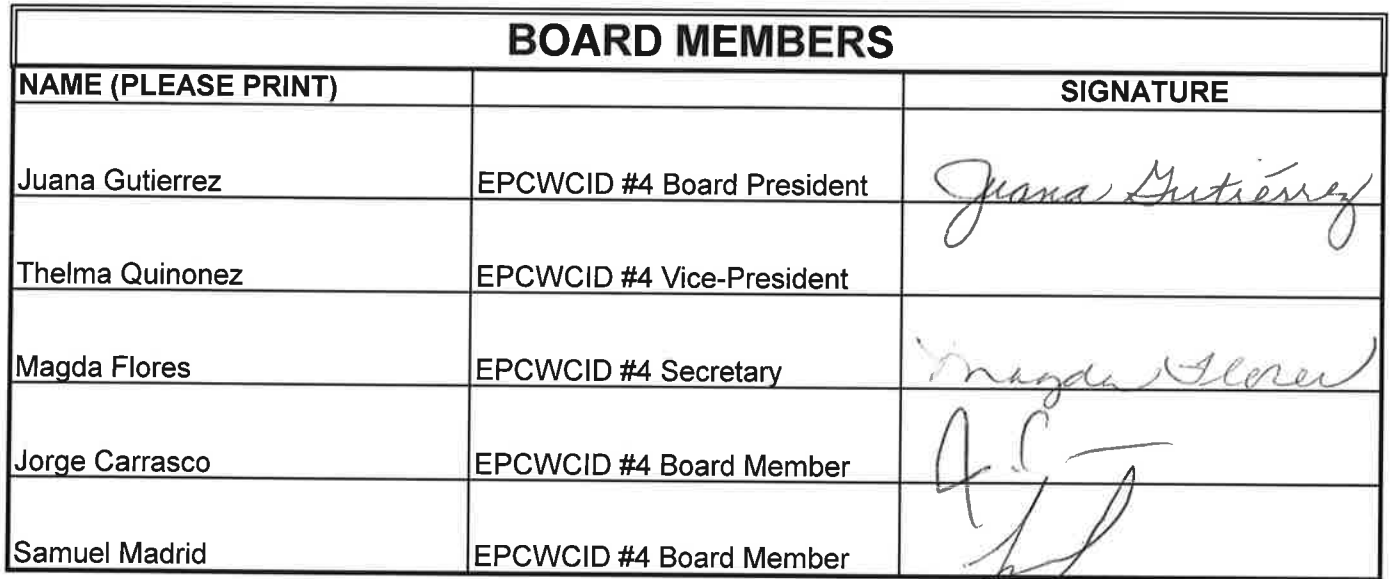 BOARD MEMBERS
NAME (PLEASE PRINT) SIGNATURE
Juana Gutierrez EPCWCID #4 Board President Juana Gutiérrez
Thelma Quinonez EPCWCID #4 Vice-President
Magda Flores EPCWCID #4 Secretary Magda Flores
Jorge Carrasco EPCWCID #4 Board Member
Samuel Madrid EPCWCID #4 Board Member